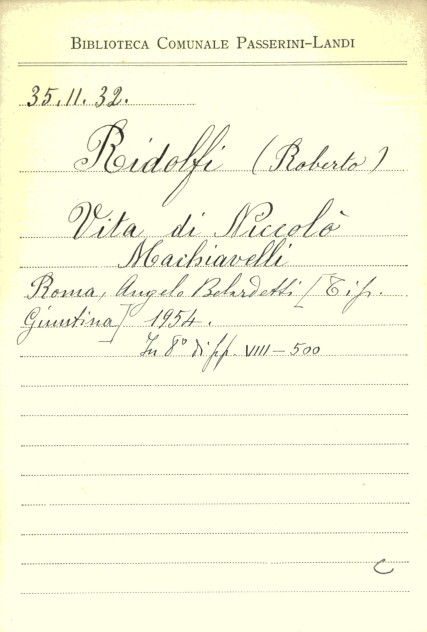 BIBLIOTECA COMUNALE PASSERINI-LANDI
35.11.32.
Ridolfi (Roberto)
Vita di Niccolò
Machiavelli
Roma, Angelo Belardetti [Tip.
Giuntina] 1954.
In 8° di pp. VIII-500
C